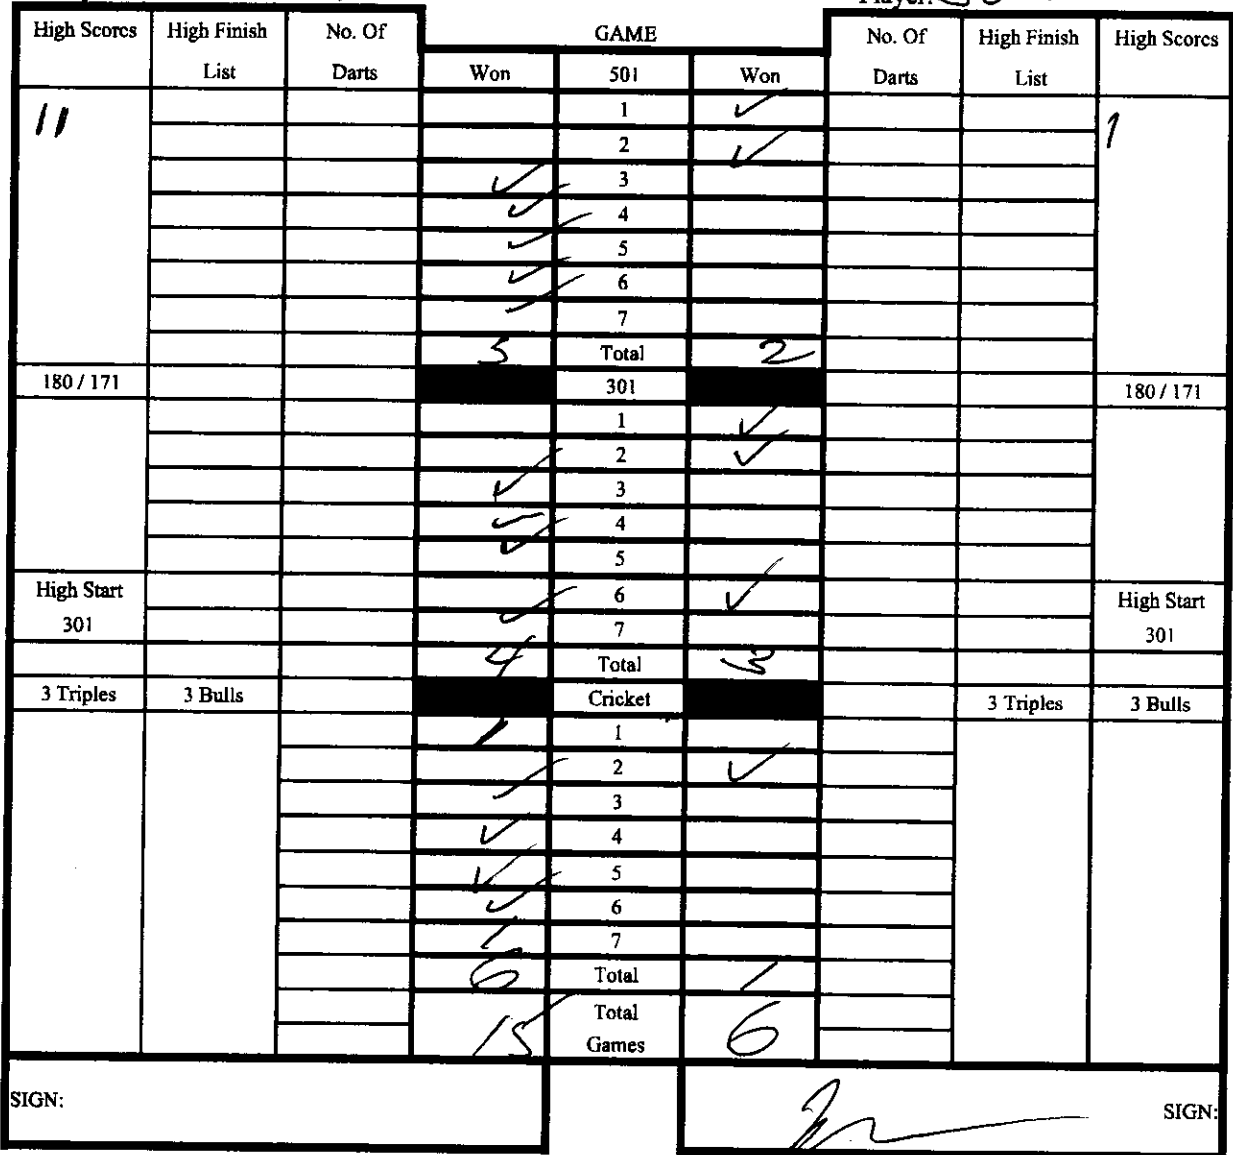 Player:
High Scores High Finish List No. Of Darts GAME No. Of Darts High Finish List High Scores
Won 501 Won
11 1 ✓ 1
2 ✓
✓ 3
✓ 4
✓ 5
✓ 6
✓ 7
5 Total 2
180 / 171 301 180 / 171
1 ✓
2 ✓
✓ 3
✓ 4
✓ 5
High Start 301 6 ✓ High Start 301
✓ 7
4 Total 3
3 Triples 3 Bulls Cricket 3 Triples 3 Bulls
✓ 1
2 ✓
✓ 3
✓ 4
✓ 5
✓ 6
✓ 7
6 Total 1
15 Total Games 6
SIGN: SIGN: